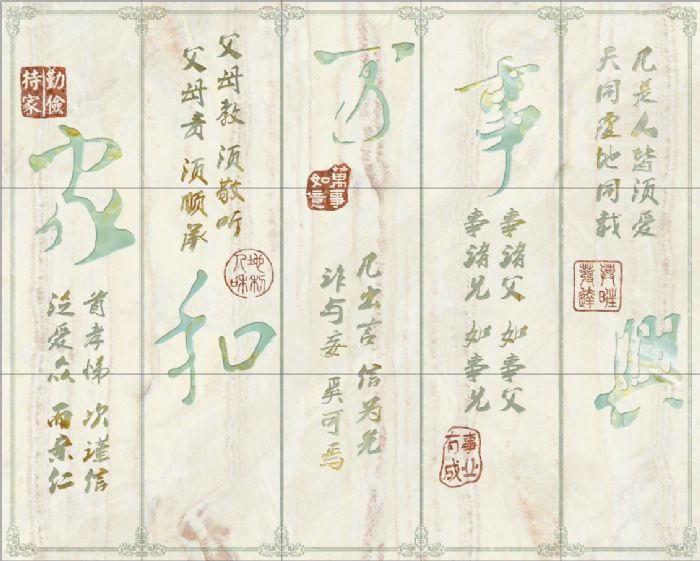 勤儉
持家
家
首孝悌 次谨信
泛爱众 而亲仁
父母教 须敬听
父母责 须顺承
地利
人和
和
万
萬事
如意
凡出言 信为先
诈与妄 奚可焉
事
事诸父 如事父
事诸兄 如事兄
事业
有成
凡是人 皆须爱
天同覆 地同载
興旺
發達
興